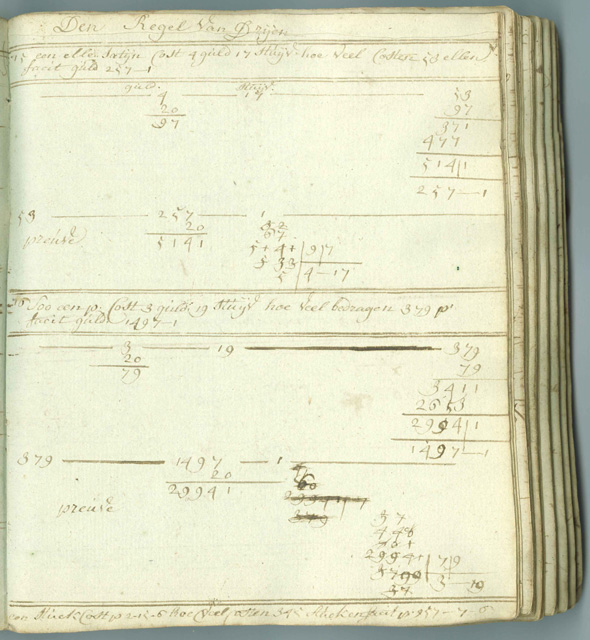 Den Regel Van Drijen
15 een ellen Satijn Cost 4 guld 17 Stuyv hoe veel Costen 53 ellen
facit guld 257-1
guld. Stuyv.
4 17 53
20 97
97 371
477
514|1
257-1
53 257 1
20
preuve 5141
5141 | 97
533 | 4-17
5
Soo een p. Cost 3 guld 19 Stuyv hoe veel bedragen 379 p
facit guld 1497-1
3 19 379
20 79
79 3411
2653
2994|1
1497-1
379 1497 1
20
29941
preuve
37
448
29941 | 79
3799 | 3-19
37
een Stuck Cost p 2-15-6 Hoe Veel Costen 345 Stucken facit p 957-7-6